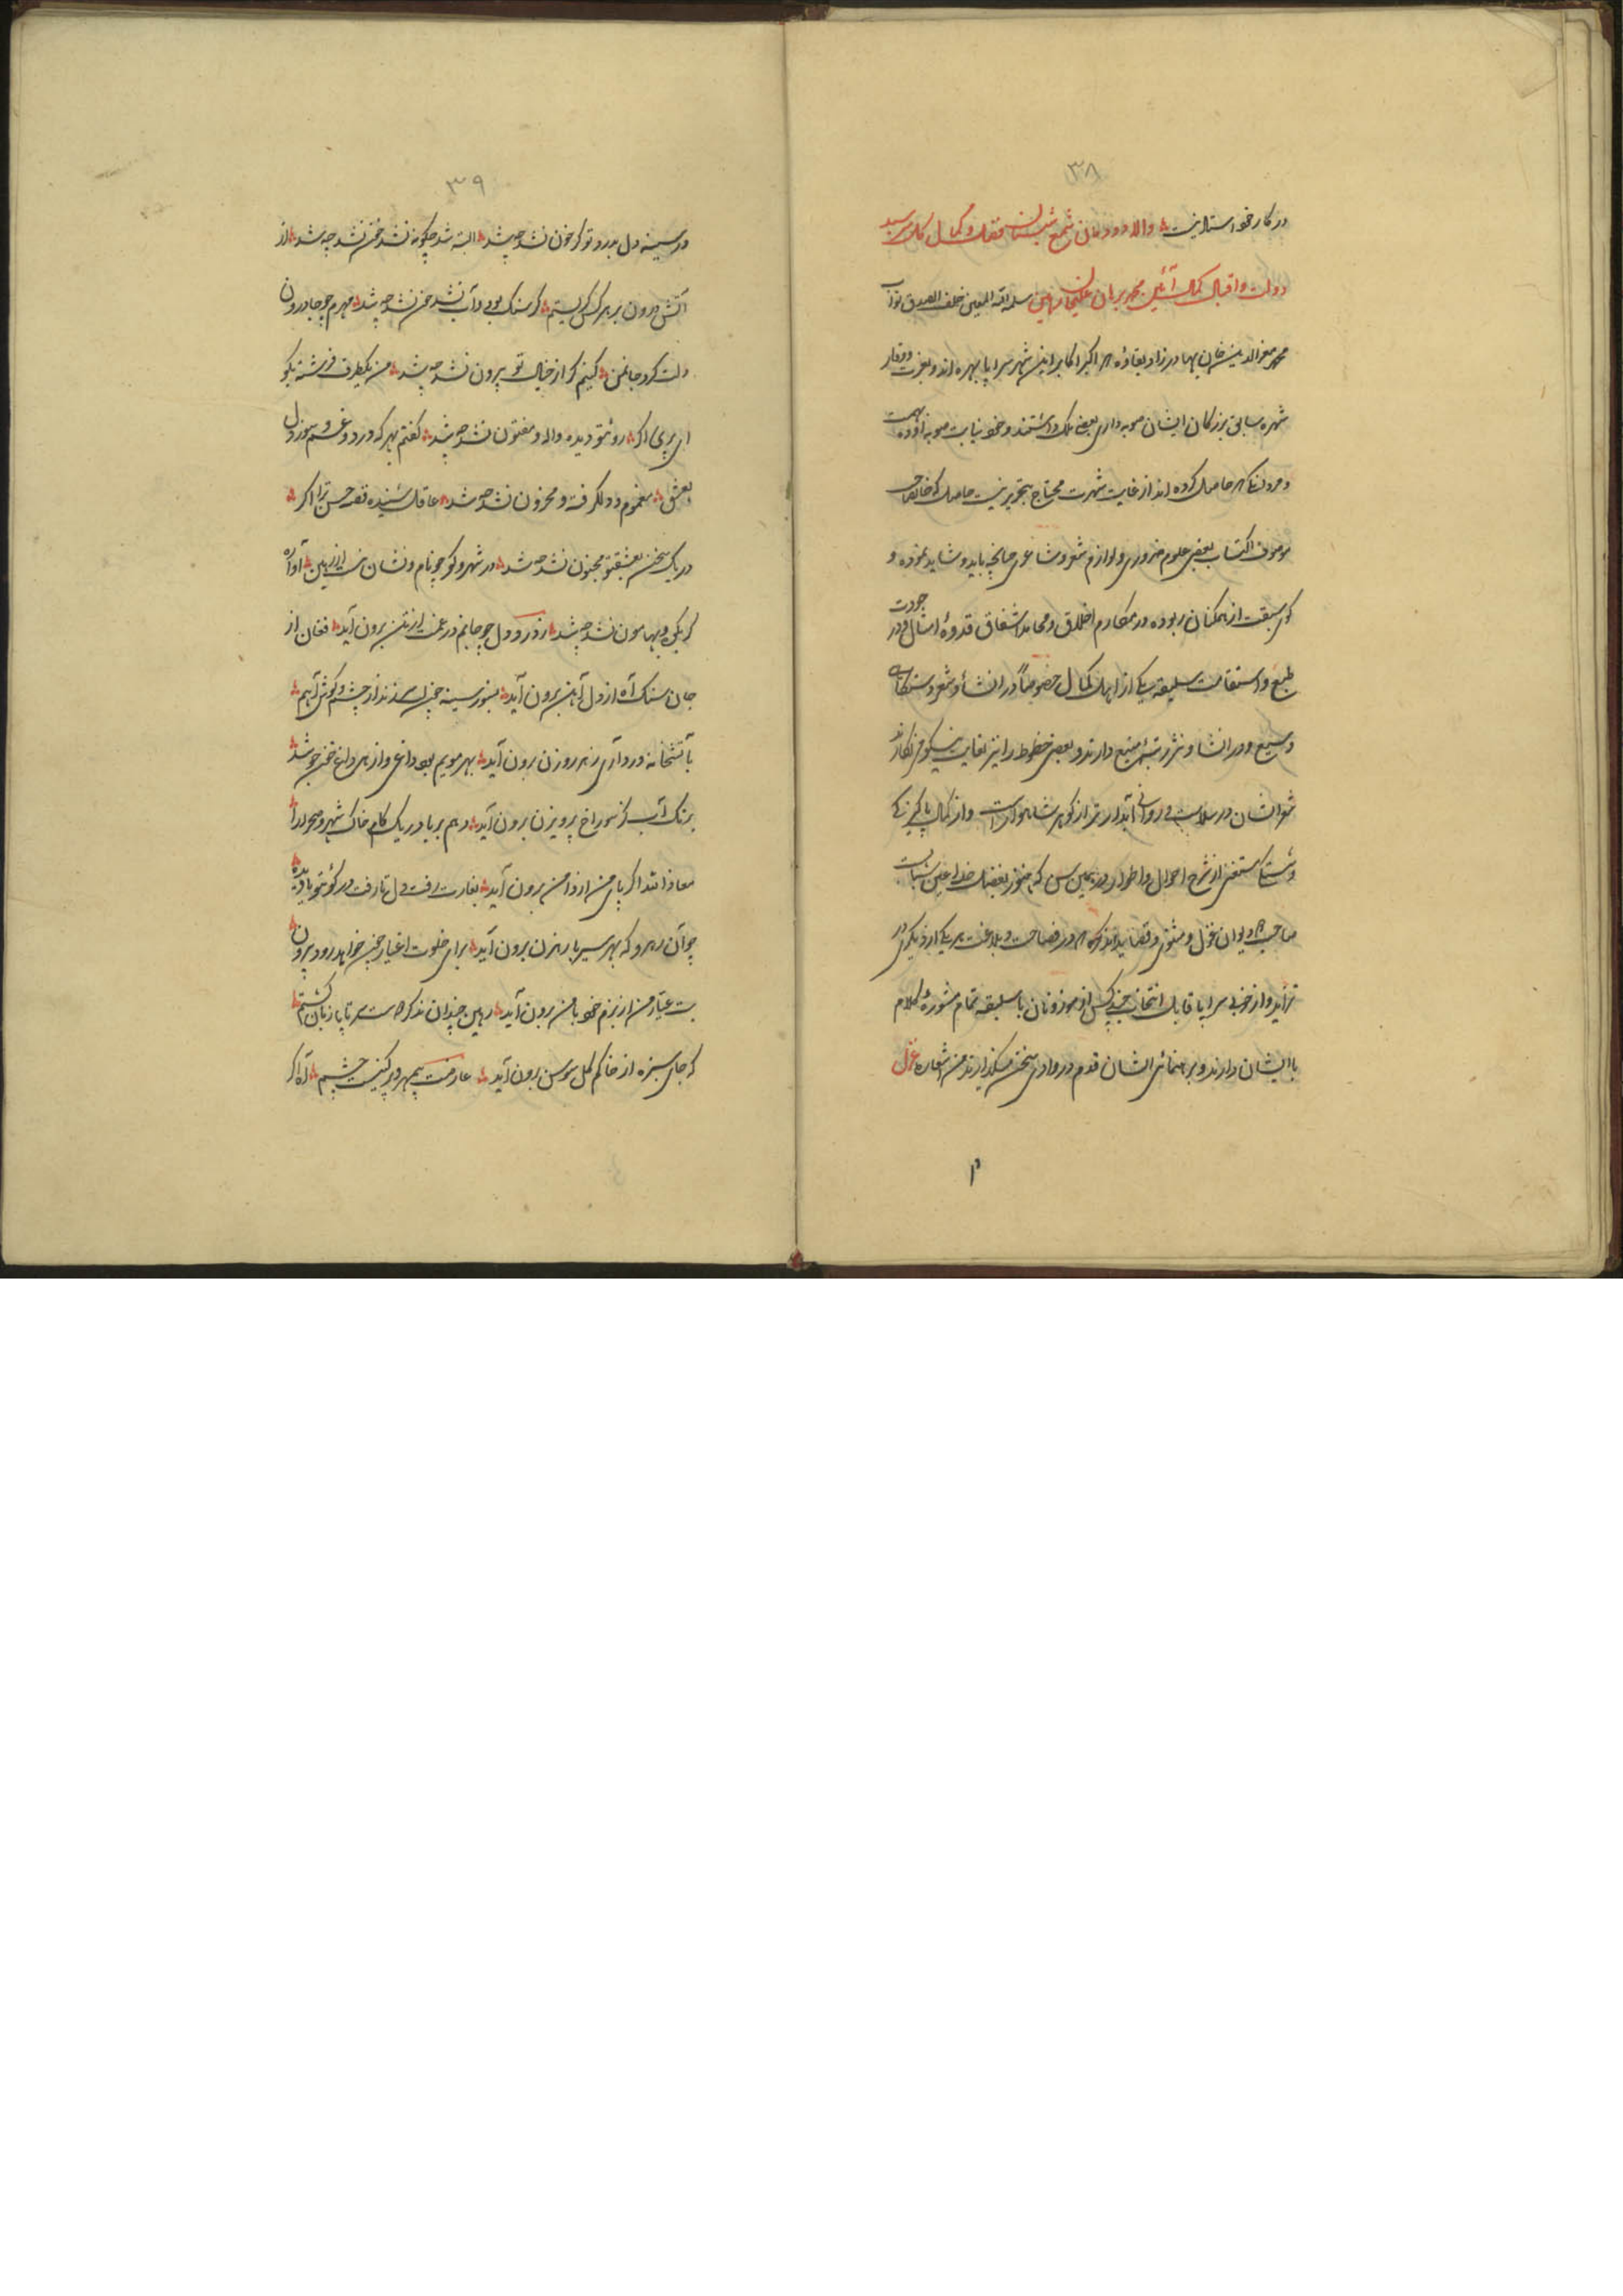 ۳۸
در کار خود استاد نیست والا دودمان شمع شبستان فضل و کمال گل سرسبد
دولت و اقبال کمال آئین محمد برهان علیخان رهین سلمه الله المعین خلف الصدق نواب
محمد معزالدین خان بهادر زاد بقاؤه از اکبر اکابر این شهر سراپا بهره اند و بعزت و وقار
شهره سابق بزرگان ایشان صوبه داری بعضی ملک داشتند و خود نیابت صوبه
و مردانگی حاصل کرده اند از غایت شهرت محتاج بتحریر نیست حاصل که خانصاحب
موصوف اکتساب بعضی علوم ضروری و لوازم شعر و شاعری چنانچه باید و شاید نموده و
گوی سبقت از همگنان ربوده در مکارم اخلاق و محامد اشفاق قدوهٔ امثال و در جودت
طبع و استقامت سلیقه یکی از اهل کمال خصوصاً در انشا و شعر دستگاهی
وسیع و در انشا و نثر رتبهٔ منیع دارند و بعضی خطوط را نیز بغایت نیکو می نگارند
شعر ایشان در سلاست و روانی آبدارتر از گوهر شاهوار است و از کمال پاکیزگی
و شستگی مستغنی از شرح احوال و اطوار در همین سن که هنوز بفضل خدا عین شباب
صاحب دیوان غزل و مثنوی و قصاید اند که در فصاحت و بلاغت هر یکی از دیگری در
تزاید و از خوبی سراپا قابل انتخاب چندی کس از موزونان با سلیقه تمام مشورهٔ کلام
با ایشان دارند و برهنمائی ایشان قدم در وادی سخن میگذارند من اشعاره غزل
۳۹
در سینه دل بدرد تو گر خون نشد چه شد البته شد چگونه نشد چون نشد چه شد از
آتش درون بر هر کس گریستم گر سنگ بود و آب نشد چون نشد چه شد مهرم چو جا درون
دلت کرد جان من کینم گر از خیال تو بیرون نشد چه شد من یکطرف فرشته بگو
ای پری اگر روی تو دیده واله و مفتون نشد چه شد گفتم بهر که درد و غم و سوز دل
بعشق مغموم و دلگرفته و محزون نشد چه شد عاقل شنیده قصه حسن ترا اگر
در یک سخن بعشق تو مجنون نشد چه شد در شهر و کو چو نام و نشان نیست از رهین آواره
گر بکوه و بهامون نشد چه شد ز درد دل چو جانم در غمت از تن برون آید فغان از
جان سنگ آه از دل آهن برون آید بسوز سینه چون سر زند از چشم و گوش آهم
بآتشخانه در دادی ز هر روزن برون آید بهر مویم بود داغی و از هر داغ خون جوشد
برنگ آب کز سوراخ پرویزن برون آید دهم بر باد در یک گام خاک شهر و صحرا را
معاذ الله اگر پای من از دامن برون آید بغارت رفت دل تا رفت در کوی تو با دیده
چو آن رهرو که بهر سیر با رهزن برون آید برای خلوت اغیار چون خواهد رود بیرون
بت عیار من از بزم خود با من برون آید رهین چندان بذکرت سر تا پا زبان گشتم
که جای سبزه از خاکم گل سوسن برون آید عارضت بیمهر و پر کینست چشم آه کز